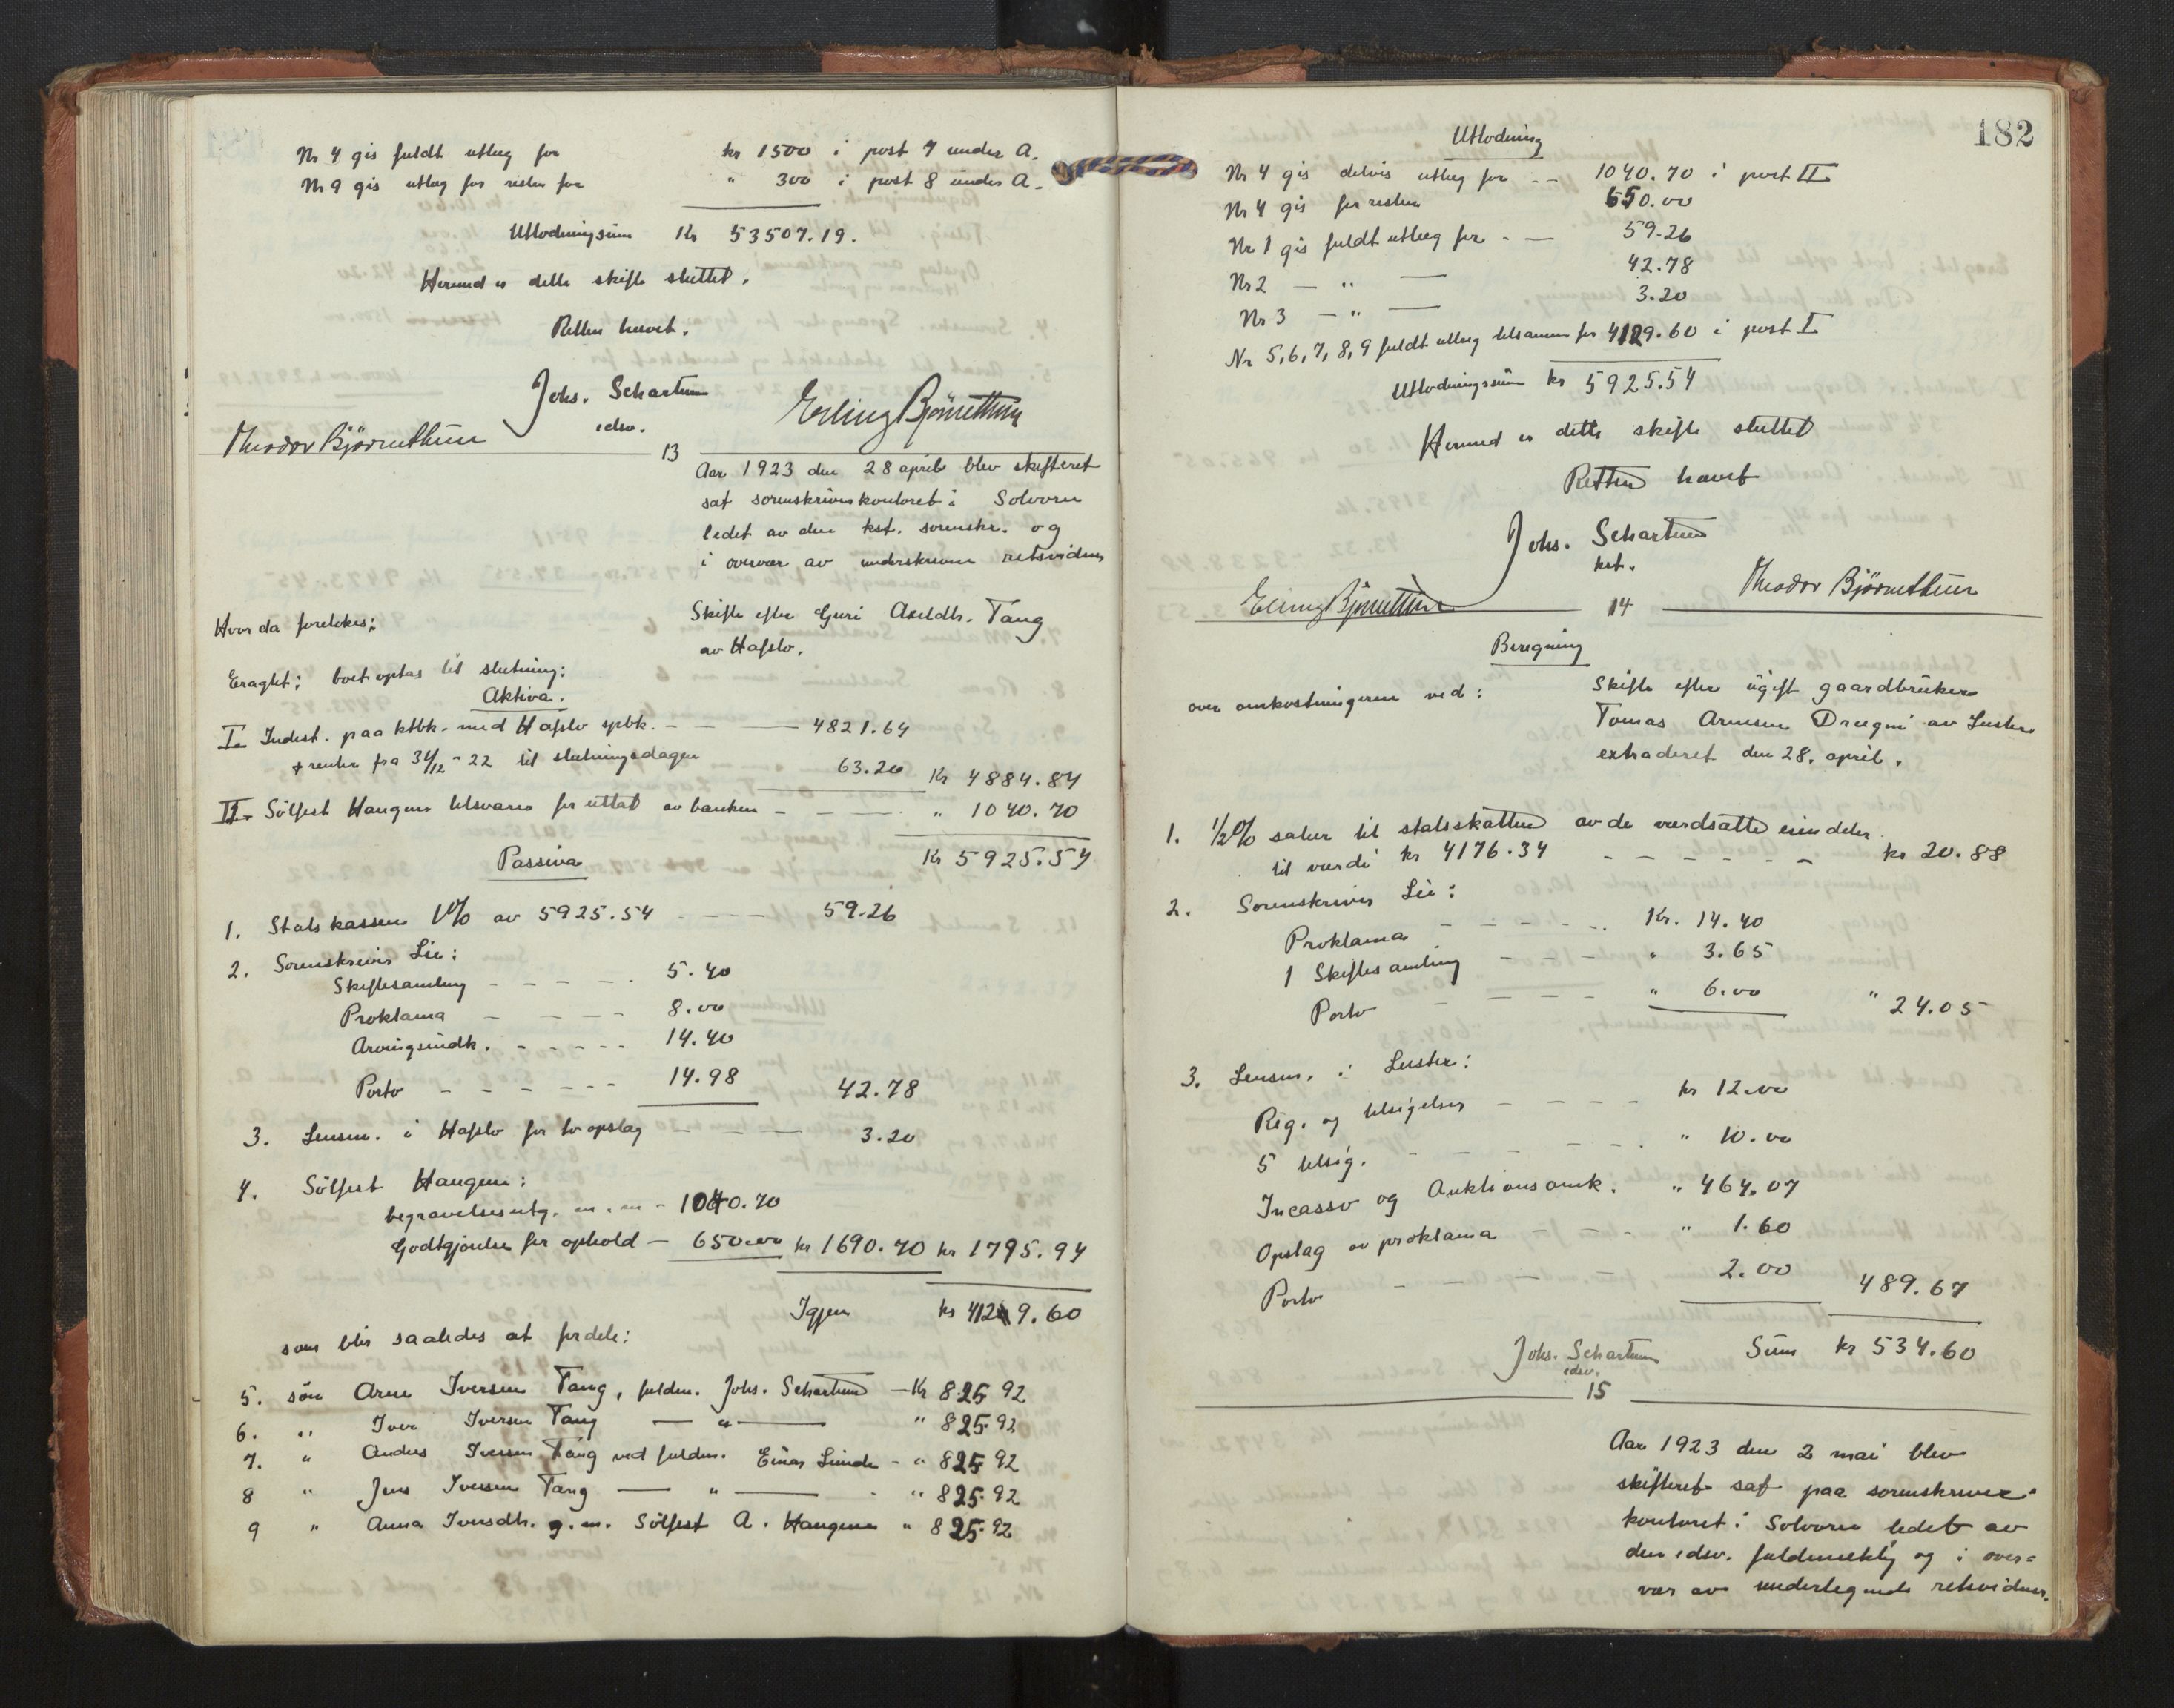 Nr 4 gis fuldt utlæg for kr 1500 i post 7 under A.
Nr 9 gis utlæg for resten for " 300 i post 8 under A.
Utlodningsum Kr 53507.19.
Hermed er dette skifte sluttet.
Retten hævet.
Johs. Schartum
edsv.
Erling Bjørnethun
Theodor Bjørnethun
13
Aar 1923 den 28 april blev skifteret
sat sorenskriverkontoret i Solvorn
ledet av den kst. sorenskr. og
i overvær av underskrevne retsvidner
Hvor da foretokes:
Skifte efter Guri Axeldtr. Tang
av Hafslo.
Eragtet: boet optas til slutning:
Aktiva.
I. Indest. paa ktbk. med Hafslo spbk. - 4821.64
+ renter fra 31/12-22 til slutningsdagen 63.20 Kr 4884.84
II. Sølfest Haugens tilsvar for uttat av banken - - - " 1040.70
Kr 5925.54
Passiva
1. Statskassen 1% av 5925.54 - - - 59.26
2. Sorenskriver Lie:
Skiftesamling - - - - 5.40
Proklama - - - - 8.00
Arvingsindk. - - - - 14.40
Porto - - - - - 14.98 42.78
3. Lensm. i Hafslo for to opslag - - - 3.20
4. Sølfest Haugen:
begravelsesutg. m. m - 1040.70
Godtgjørelse for ophold - 650.00 kr 1690.70 kr 1795.94
Igjen kr 4129.60
som blir saaledes at fordele:
5. søn Arne Iversen Tang, fuldm. Johs. Schartum - Kr 825.92
6. " Iver Iversen Tang - " - " 825.92
7. " Anders Iversen Tang ved fuldm. Einar Linde - " 825.92
8 " Jens Iversen Tang - " - " 825.92
9 " Anna Iversdtr. g. m. Sølfest A. Haugen " 825.92
182
Utlodning
Nr 4 gis delvis utlæg for - - 1040.70 i post II
Nr 4 gis for resten 650.00
Nr 1 gis fuldt utlæg for - - 59.26
Nr 2 - " - 42.78
Nr 3 - " - 3.20
Nr 5, 6, 7, 8, 9 fuldt utlæg tilsammen for 4129.60 i post I
Utlodningssum kr 5925.54
Hermed er dette skifte sluttet
Retten hævet
Johs. Schartum
kst.
Erling Bjørnethun
14
Theodor Bjørnethun
Beregning
over omkostningerne ved:
Skifte efter ugift gaardbruker
Tomas Arnesen Drægni av Luster
extraderet den 28. april.
1. 1/2% salær til statskatten av de værdsatte eiendeler
til værdi kr 4176.34 - - - - - - kr 20.88
2. Sorenskriver Lie:
Proklama - - - - - Kr. 14.40
1 Skiftesamling - - - " 3.65
Porto - - - - " 6.00 " 24.05
3. Lensm. i Luster:
Reg. og tilsigelser - - - - kr 12.00
5 tilsig. - - - - - " 10.00
Incasso og Auktionsomk. " 464.07
Opslag av proklama - - - " 1.60
Porto - - - - - 2.00 489.67
Johs. Schartum
edsv.
Sum kr 534.60
15
Aar 1923 den 2 mai blev
skifteret sat paa sorenskriver-
kontoret i Solvorn ledet av
den edsv. fuldmektig og i over=
vær av undertegnede retsvidner.